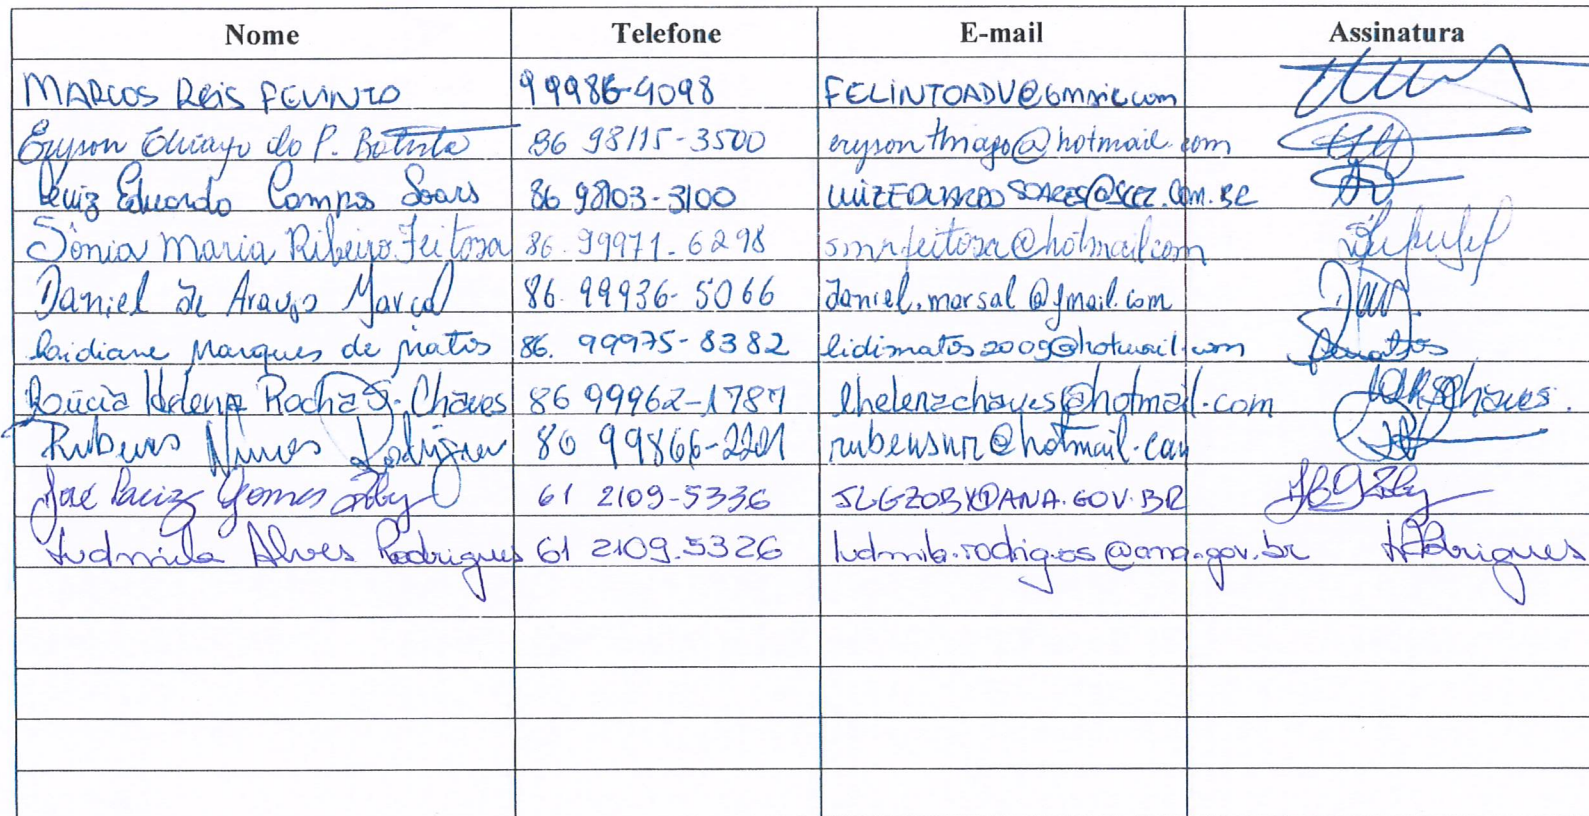 Nome Telefone E-mail Assinatura
MARCOS REIS FELINTO 99986-4098 FELINTOADV@GMAIL.COM
Eryson Thiago do P. Batista 86 98115-3500 eryson thiago@hotmail.com
Luiz Eduardo Campos Soares 86 98103-3100 LUIZEDUARDO SOARES@ .COM.BR
Sônia Maria Ribeiro Feitosa 86.99971-6298 smrfeitosa@hotmail.com
Daniel de Araujo Marçal 86.99936-5066 daniel.marsal@gmail.com
Laidiane Marques de Matos 86. 99975-8382 lidimatos2009@hotmail.com
Lúcia Helena Rocha S. Chaves 86 99962-1787 lhelenachaves@hotmail.com Chaves.
Rubens Nunes Rodrigues 86 99866-2201 rubensnr@hotmail.com
José Luiz Gomes Zoby 61 2109-5336 JLGZOBY@ANA.GOV.BR
Ludmila Alves Rodrigues 61 2109.5326 ludmila.rodrigues@ana.gov.br Rodrigues